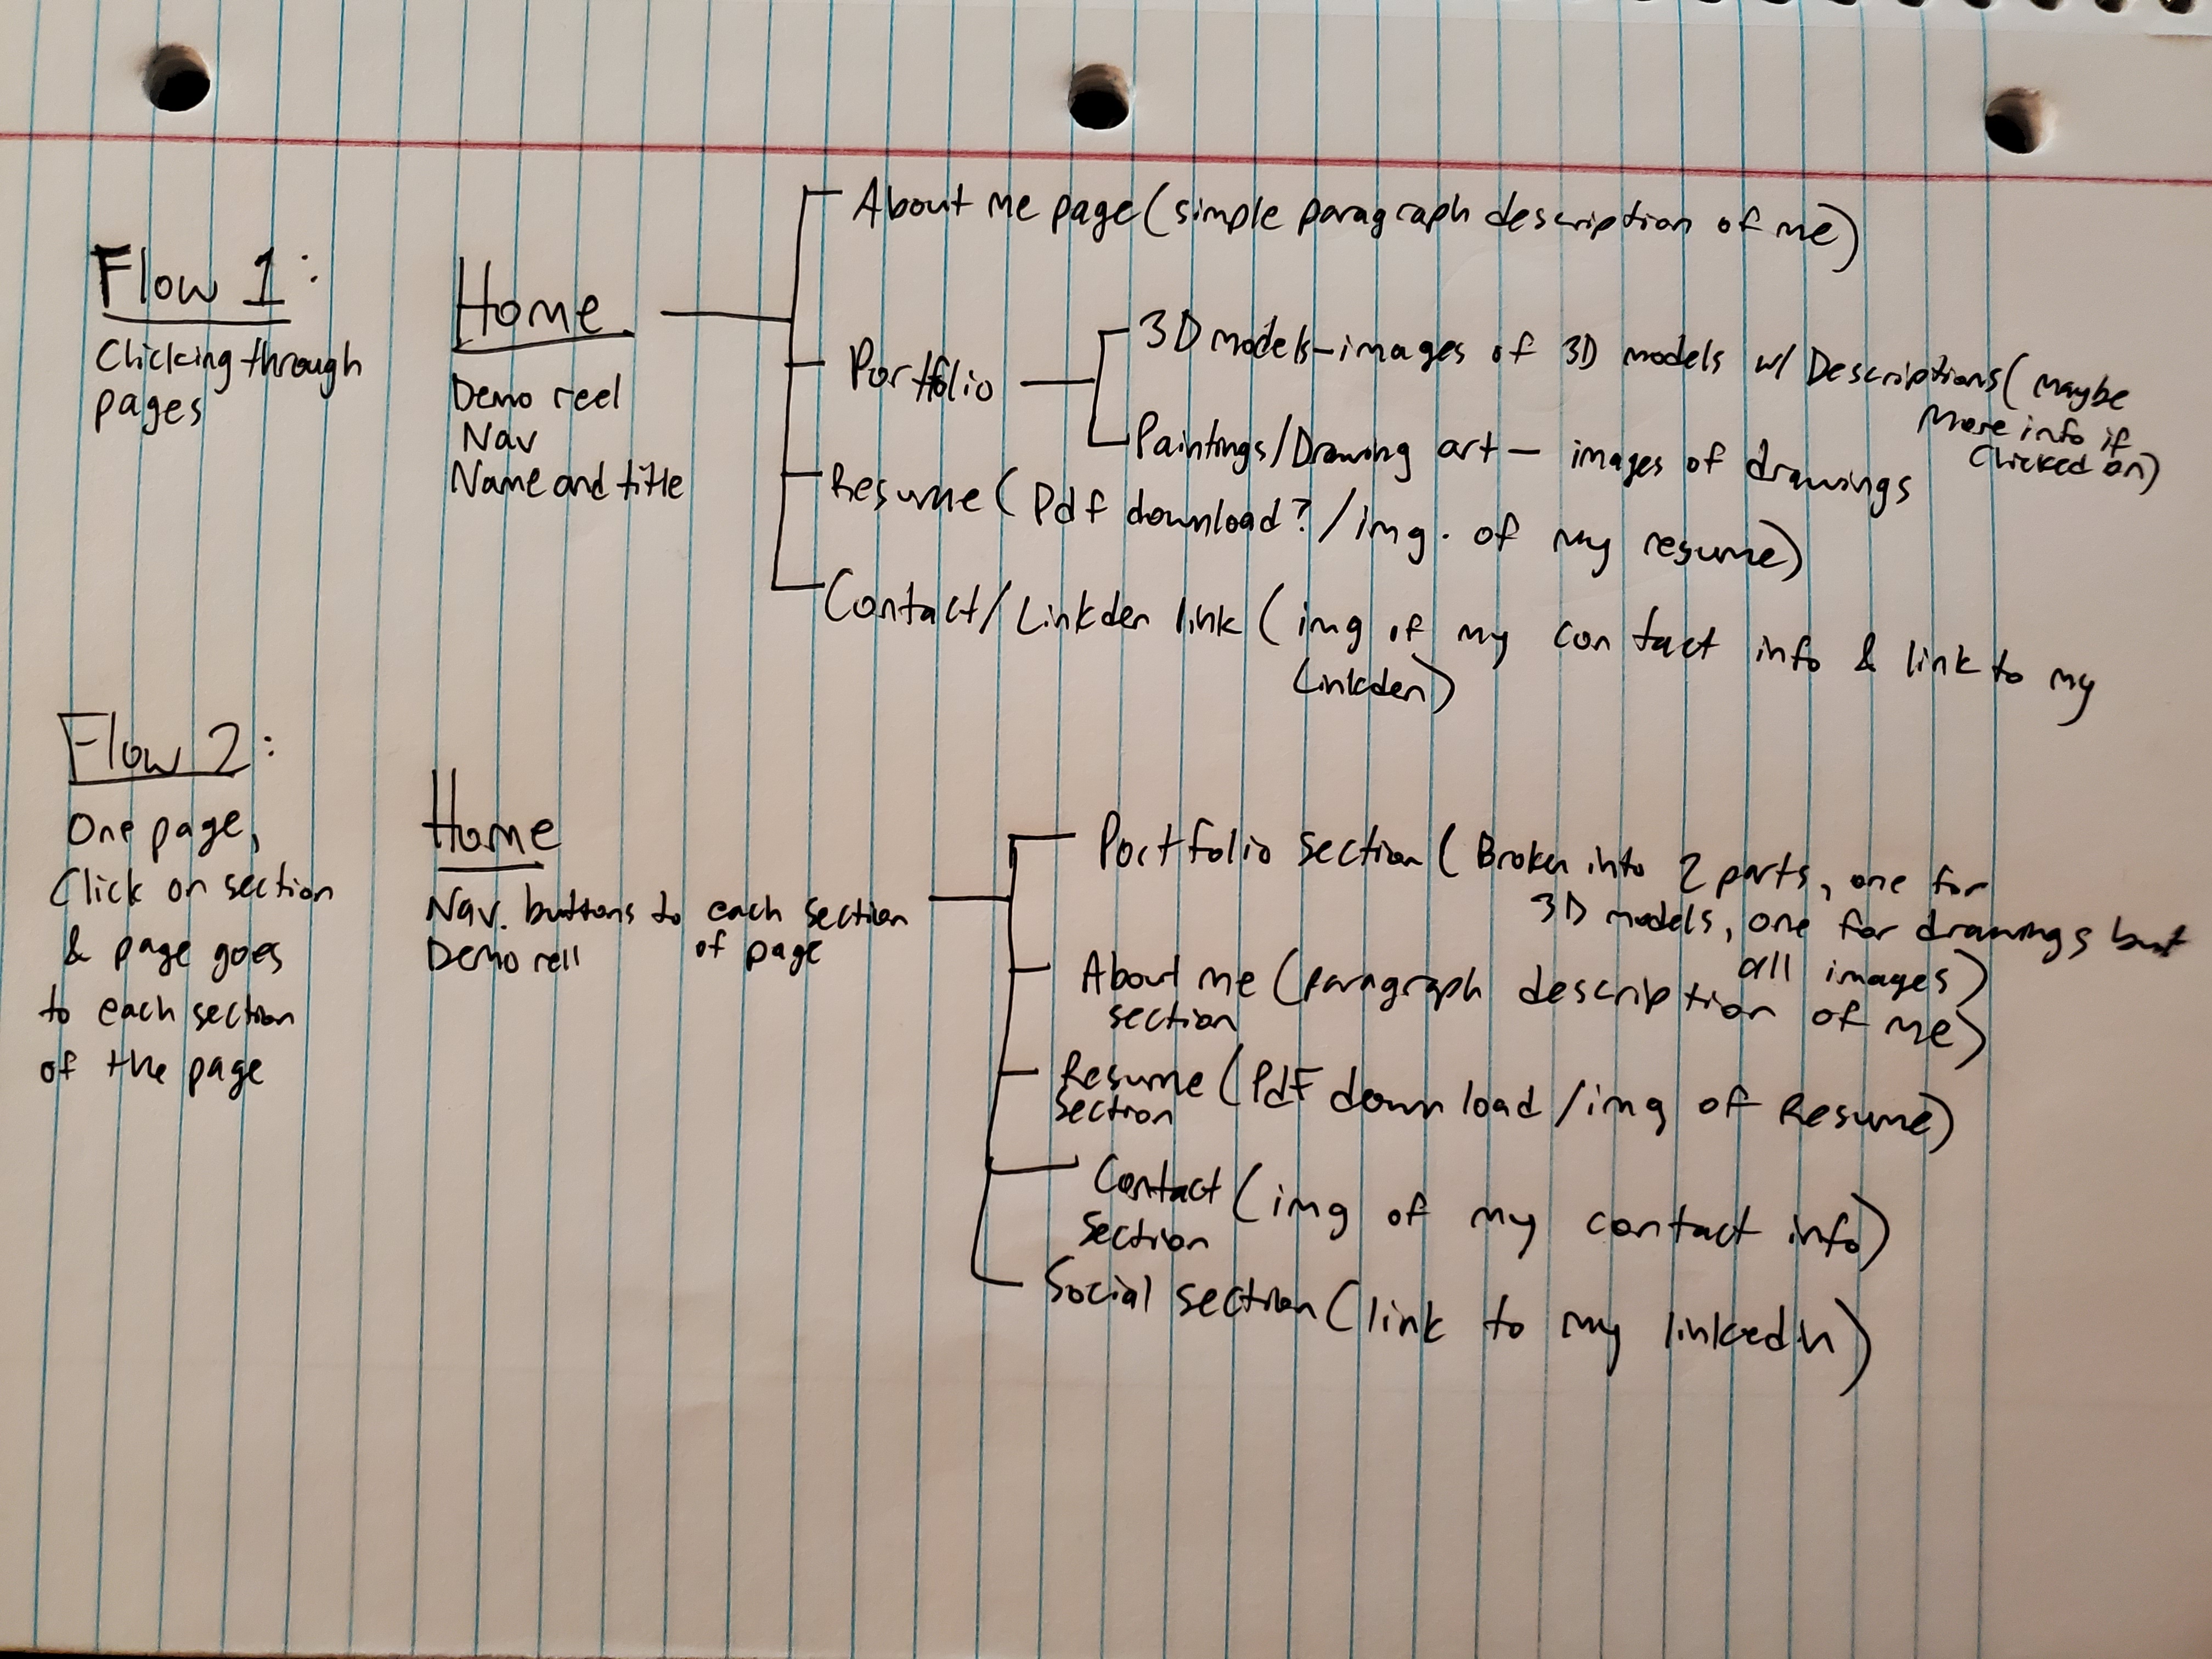 Flow 1:
Clicking through
pages
Home
Demo reel
Nav
Name and title
About me page (simple paragraph description of me)
Portfolio
3D models - images of 3D models w/ Descriptions (maybe
more info if
clicked on)
Paintings/Drawing art - images of drawings
Resume (Pdf download? / img. of my resume)
Contact / Linkden link (img of my contact info & link to my
Linkden)
Flow 2:
One page,
Click on section
& page goes
to each section
of the page
Home
Nav. buttons to each section
of page
Demo rell
Portfolio section (Broken into 2 parts, one for
3D models, one for drawings but
all images)
About me (paragraph description of me)
section
Resume (Pdf download / img of Resume)
section
Contact (img of my contact info)
section
Social section (link to my linkedn)